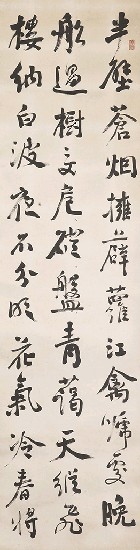 半壁蒼烟擁薜蘿江禽啼雯晚
船過樹文危磴盤青靄天縱飛
樓納白波夜不分明花氣冷春將